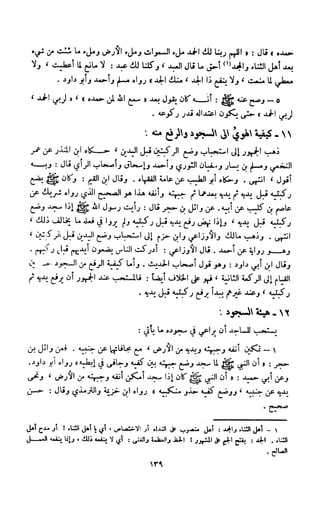 حمده » قال : « اللهم ربنا لك الحمد ملء السموات وملء الأرض وملء ما شئت من شيء
بعد أهل الثناء والمجد (١) أحق ما قال العبد ، وكلنا لك عبد : لا مانع لما أعطيت ، ولا
معطي لما منعت ، ولا ينفع ذا الجد ، منك الجد » رواه مسلم وأحمد وأبو داود .
٥ – وصح عنه ﷺ : أنه كان يقول بعد « سمع الله لمن حمده » : « لربي الحمد ،
لربي الحمد » حتى يكون اعتداله قدر ركوعه .
١١ – كيفية الهوي إلى السجود والرفع منه :
ذهب الجمهور إلى استحباب وضع الركبتين قبل اليدين ، حكاه ابن المنذر عن عمر
النخعي ومسلم بن يسار وسفيان الثوري وأحمد وإسحاق وأصحاب الرأي قال : وبه
أقول ، انتهى . وحكاه أبو الطيب عن عامة الفقهاء . وقال ابن القيم : وكان ﷺ يضع
ركبتيه قبل يديه ثم يديه بعدهما ثم جبهته وأنفه هذا هو الصحيح الذي رواه شريك عن
عاصم بن كليب عن أبيه . عن وائل بن حجر قال : رأيت رسول الله ﷺ إذا سجد وضع
ركبتيه قبل يديه ، وإذا نهض رفع يديه قبل ركبتيه ولم يرو في فعله ما يخالف ذلك ،
انتهى . وذهب مالك والأوزاعي وابن حزم إلى استحباب وضع اليدين قبل الركبتين ،
وهو رواية عن أحمد . قال الأوزاعي : أدركت الناس يضعون أيديهم قبل ركبهم .
وقال ابن أبي داود : وهو قول أصحاب الحديث . وأما كيفية الرفع من السجود حين
القيام إلى الركعة الثانية ، فهو على الخلاف أيضاً : فالمستحب عند الجمهور أن يرفع يديه ثم
ركبتيه ، وعند غيرهم يبدأ برفع ركبتيه قبل يديه .
١٢ – هيئة السجود :
يستحب للساجد أن يراعي في سجوده ما يأتي :
١ – تمكين أنفه وجبهته ويديه من الأرض ، مع مجافاتها عن جنبيه . فعن وائل بن
حجر : « أن النبي ﷺ لما سجد وضع جبهته بين كفيه وجافى في إبطيه » رواه أبو داود.
وعن أبي حميد : « أن النبي ﷺ كان إذا سجد أمكن أنفه وجبهته من الأرض ، ونحى
يديه عن جنبيه ، ووضع كفيه حذو منكبيه » رواه ابن خزيمة والترمذي وقال : حسن
صحيح .
١ – أهل الثناء والمجد : أهل منصوب على النداء أو الاختصاص ، أي يا أهل الثناء ! أو مدح أهل
الثناء . الجد : بفتح الجيم على المشهور : الحظ والعظمة والغنى : أي لا ينفعه ذلك ، وإنما ينفعه العمل
الصالح .
١٣٩